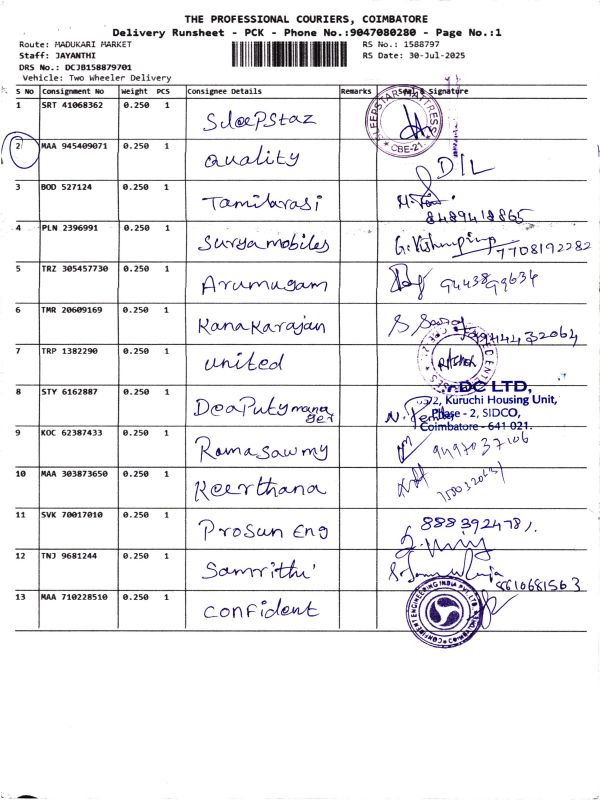 THE PROFESSIONAL COURIERS, COIMBATORE
Delivery Runsheet - PCK - Phone No.:9047080280 - Page No.:1
Route: MADUKARI MARKET RS No.: 1588797
Staff: JAYANTHI RS Date: 30-Jul-2025
DRS No.: DCJB158879701
Vehicle: Two Wheeler Delivery
S No Consignment No Weight PCS Consignee Details Remarks Seal & Signature
1 SRT 41068362 0.250 1 SleePStaz SLEEPSTAR MATTRESS CBE-21
2 MAA 945409071 0.250 1 Quality D/L
3 BOD 527124 0.250 1 Tamilarasi 8489418865
4 PLN 2396991 0.250 1 Surya mobiles 7708192282
5 TRZ 305457730 0.250 1 Arumugam
6 TMR 20609169 0.250 1 Kanakarajan
7 TRP 1382290 0.250 1 United
8 STY 6162887 0.250 1 DeaPuty manager DC LTD,
2, Kuruchi Housing Unit,
Phase - 2, SIDCO,
Coimbatore - 641 021.
9 KOC 62387433 0.250 1 Ramasawmy 9497037106
10 MAA 303873650 0.250 1 Keerthana
11 SVK 70017010 0.250 1 ProSun Eng
12 TNJ 9681244 0.250 1 Samrithi 8610681563
13 MAA 710228510 0.250 1 Confident CONFIDENT ENGINEERING INDIA PVT LTD